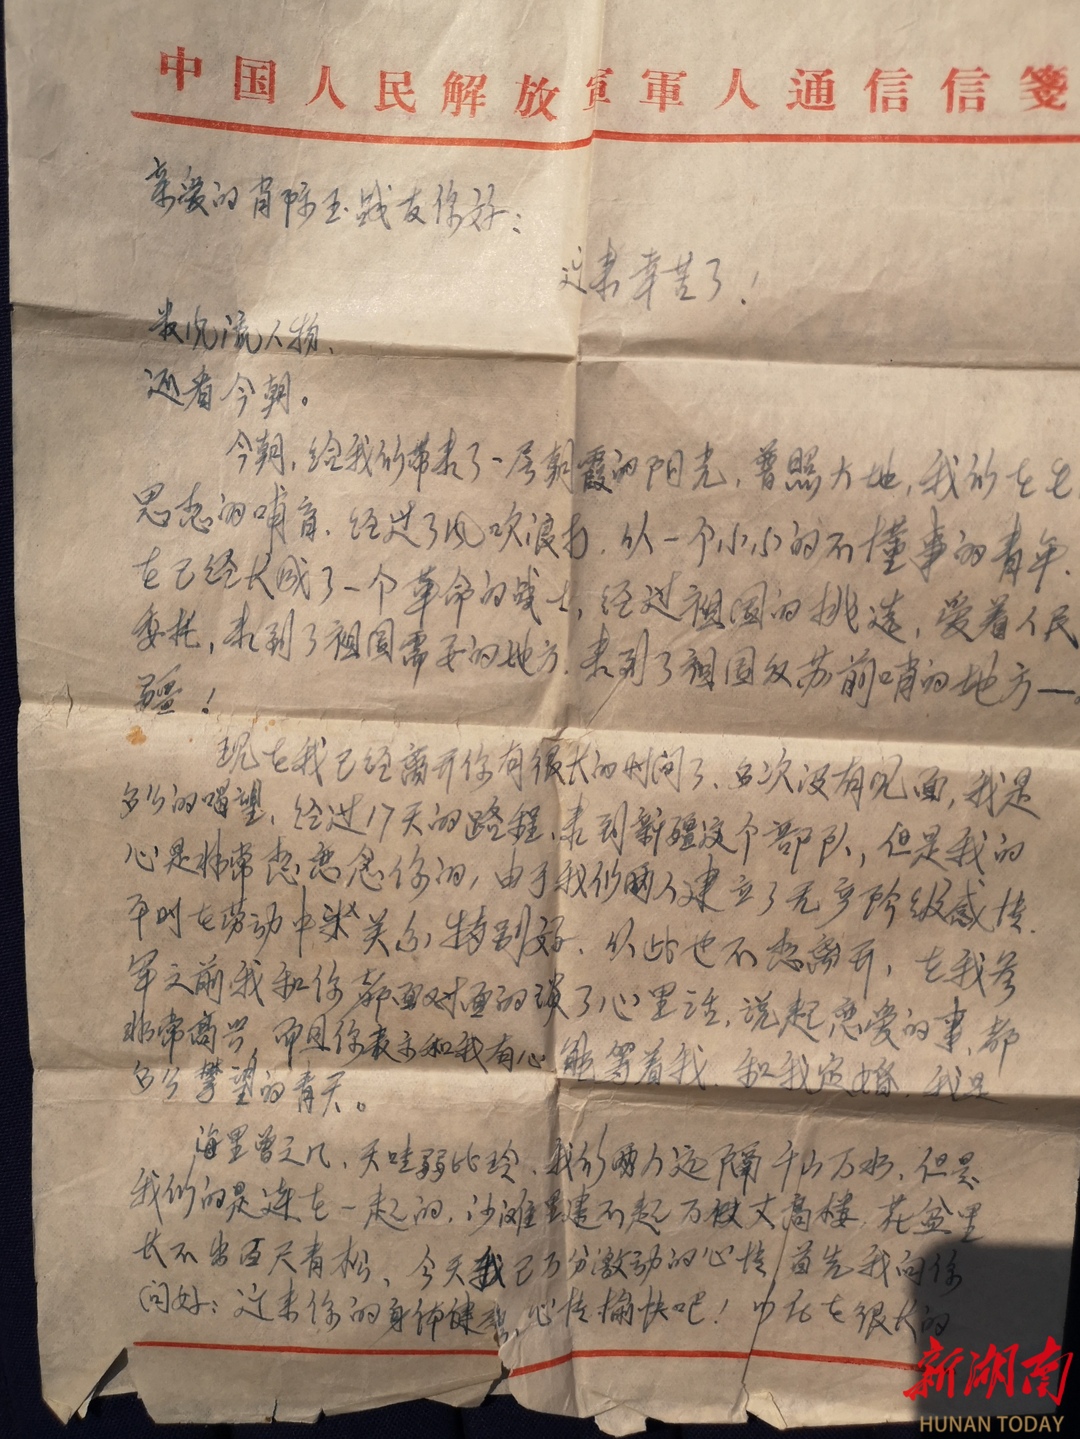 中国人民解放軍軍人通信信箋
亲爱的肖陈玉战友你好：
近来幸苦了！
数风流人物、
还看今朝。
今朝，给我们带来了一层朝霞的阳光，普照大地，我们在毛
思想的哺育、经过了风吹浪打、从一个小小的不懂事的青年、
在已经长成了一个革命的战士，经过祖国的挑选，受着人民
委托，来到了祖国需要的地方、来到了祖国反苏前哨的地方一
疆！
现在我已经离开你有很大的时间了、多次没有见面，我是
万分的喝望、经过17天的路程、来到新疆这个部队，但是我的
心是非常想念你的，由于我们两人建立了无产阶级感情、
平时在劳动中关系特别好、从此也不想离开，在我参
军之前我和你都面对面的谈了心里话、说起恋爱的事、都
非常高兴、而且你表示和我有心能等着我、和我定婚、我是
万分攀望的青天。
海里曾之几、天哇弱比玲、我们两人远隔千山万水、但是
我们的是连在一起的、沙滩里建不起万丈高楼、花盆里
长不出百尺青松、今天我已万分激动的心情首先我向你
问好：近来你的身体健心情愉快吧！在很大的
新湖南
HUNAN TODAY